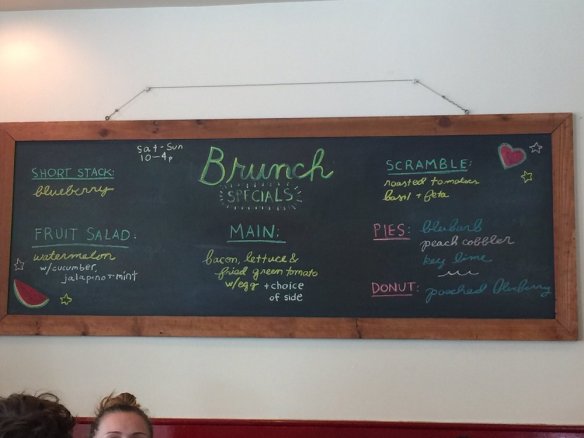 Sat-Sun
10-4p
Brunch
SPECIALS
SHORT STACK:
blueberry
FRUIT SALAD:
watermelon
w/cucumber,
jalapino+mint
MAIN:
bacon, lettuce &
fried green tomato
w/egg + choice
of side
SCRAMBLE:
roasted tomatoes
basil + feta
PIES: blubarb
peach cobbler
key lime
DONUT: poached blueberry